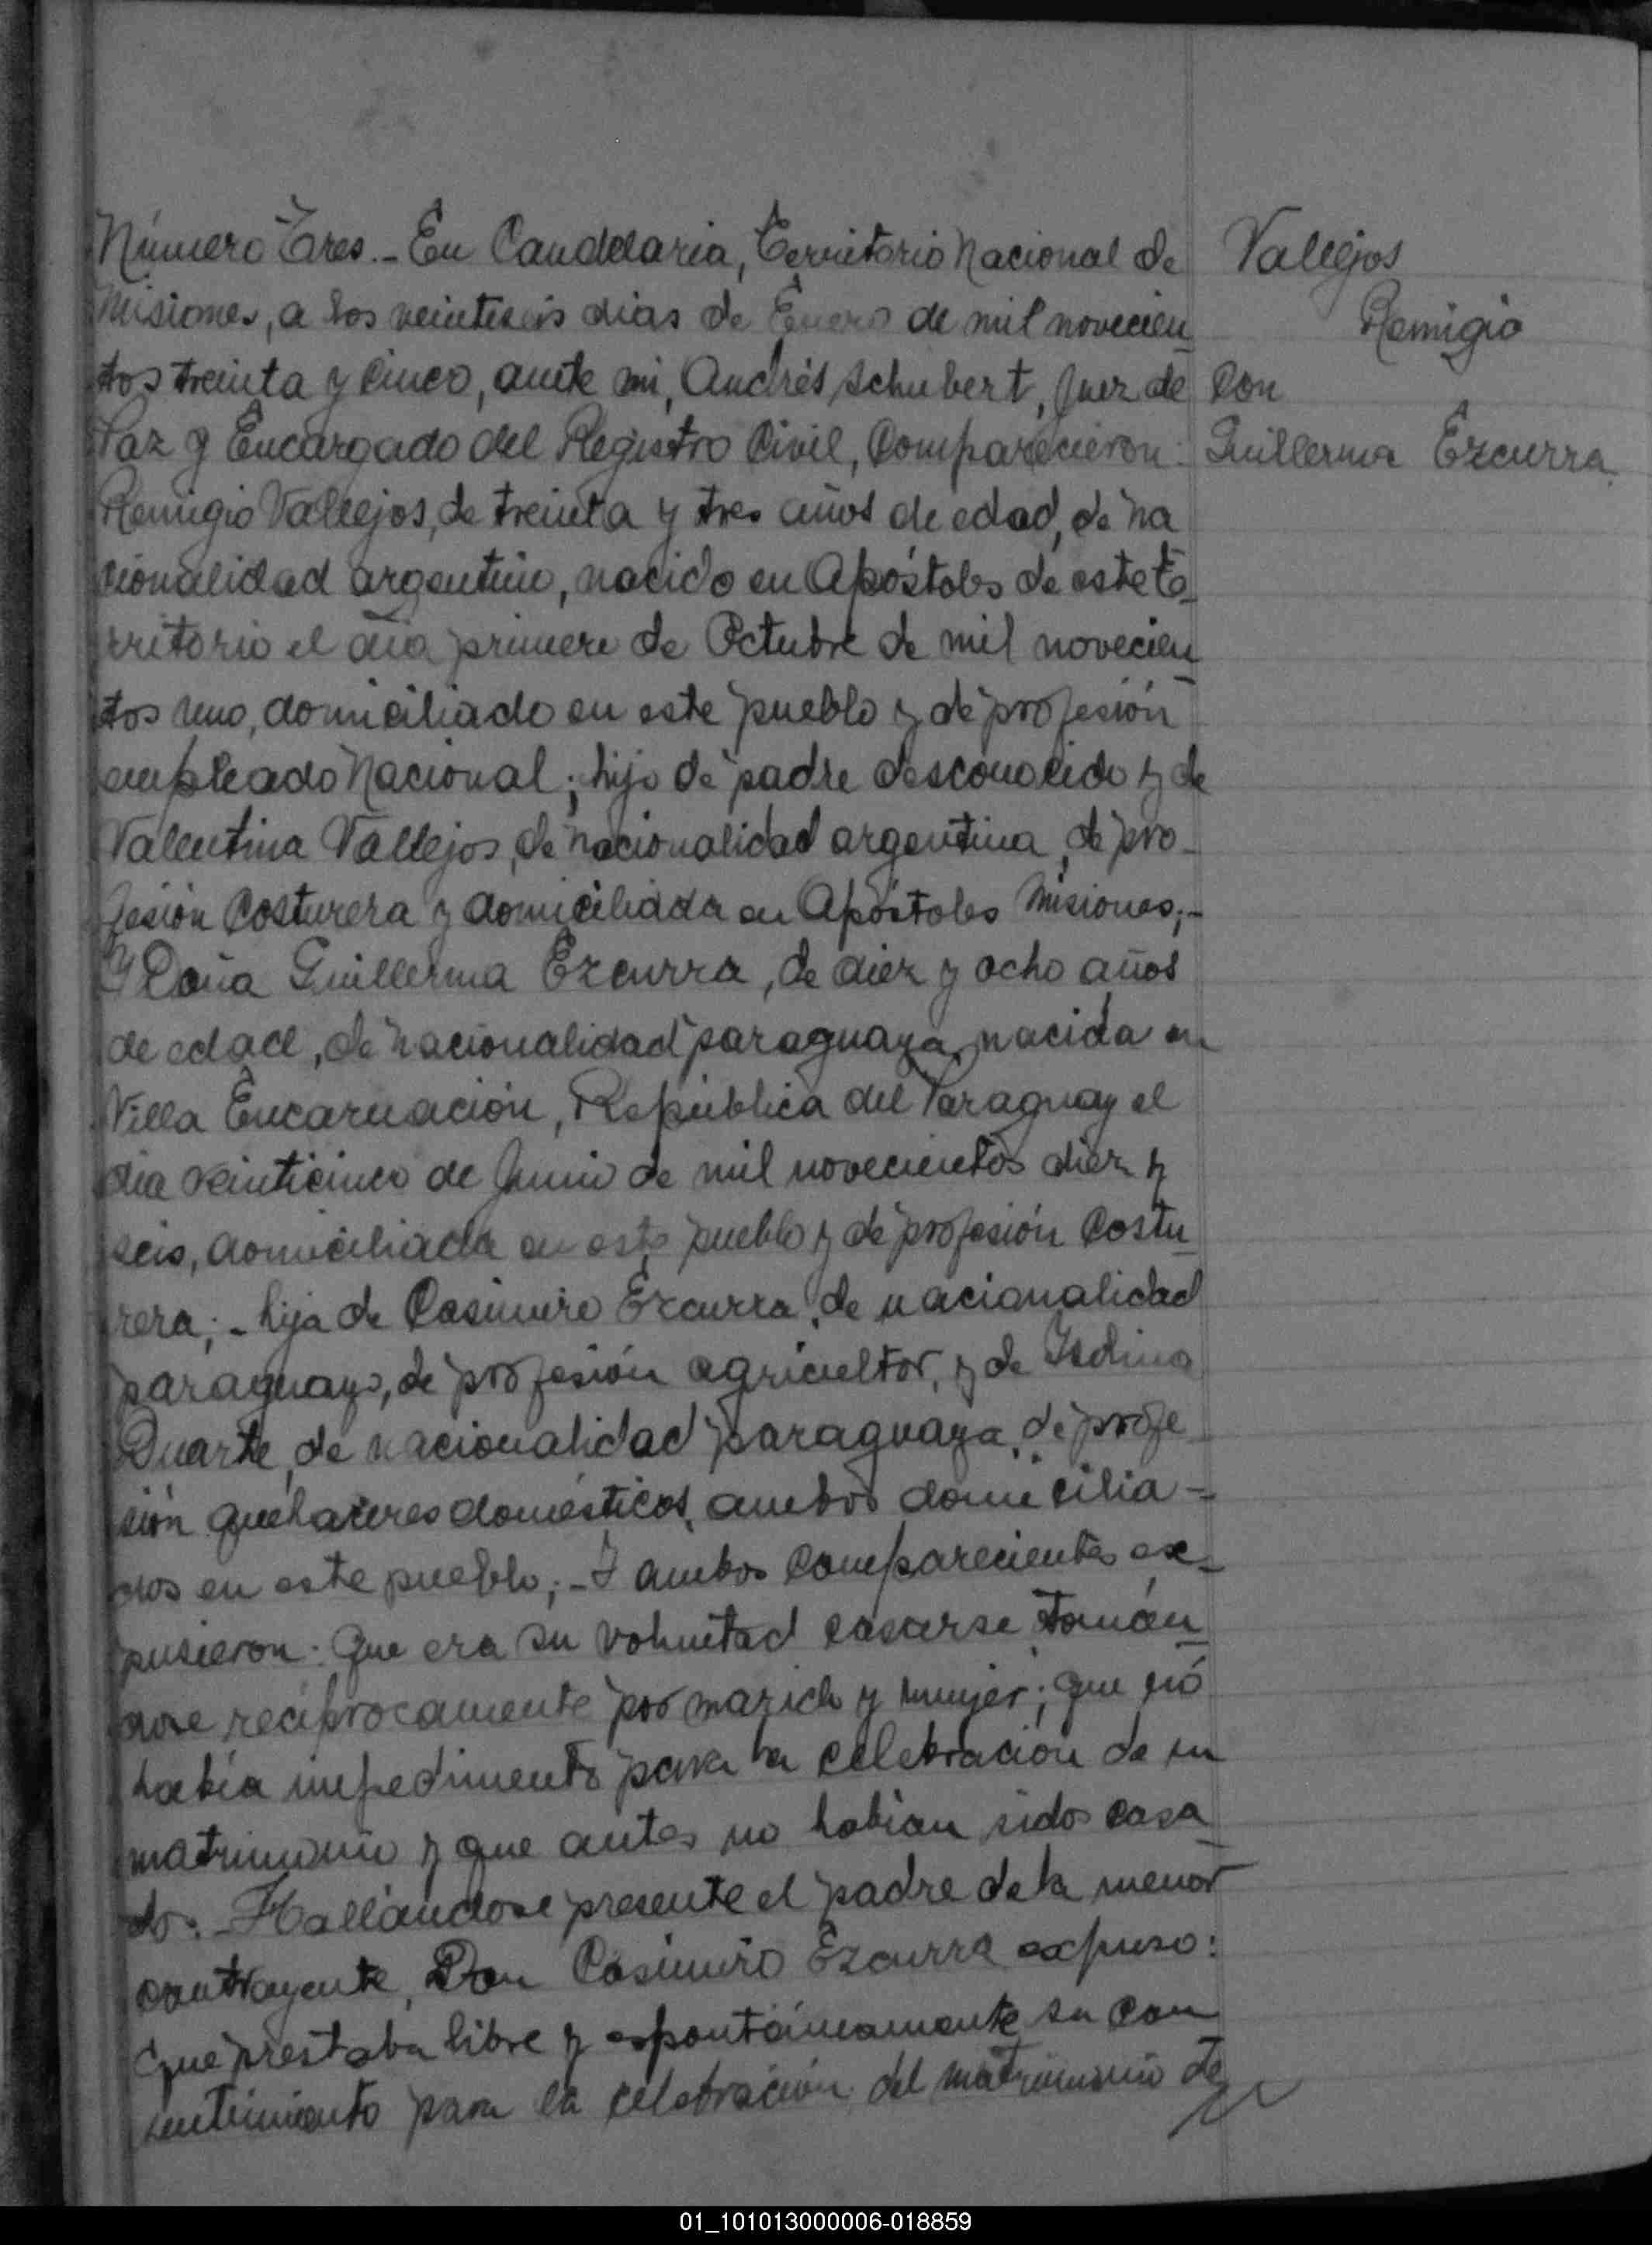 Número Tres.- En Candelaria, Territorio Nacional de
Misiones, a los veintiseis dias de Enero de mil novecien
tos treinta y cinco, ante mi, Andrés Schubert, Juez de
Paz y Encargado del Registro Civil, Comparecieron:
Remigio Vallejos, de treinta y tres años de edad, de na
cionalidad argentino, nacido en Apóstoles de este te
rritorio el día primero de Octubre de mil novecien
tos uno, domiciliado en este pueblo y de profesión
empleado Nacional; hijo de padre desconocido y de
Valentina Vallejos, de nacionalidad argentina, de pro-
fesión Costurera y domiciliada en Apóstoles Misiones;-
Y Doña Guillerma Ezcurra, de diez y ocho años
de edad, de nacionalidad paraguaya, nacida en
Villa Encarnación, República del Paraguay el
dia veinticinco de Junio de mil novecientos diez y
seis, domiciliada en este pueblo y de profesión Costu
rera;- hija de Casimiro Ezcurra, de nacionalidad
paraguayo, de profesión agricultor, y de
Duarte, de nacionalidad paraguaya, de profe
sión quehaceres domésticos, ambos domicilia-
dos en este pueblo;- Y ambos Comparecientes ex-
pusieron: Que era su voluntad casarse tomán
dose recíprocamente por marido y mujer; que nó
había impedimento para la celebración de su
matrimonio y que antes no habian sidos casa
dos.- Hallándose presente el padre de la menor
contrayente, Don Casimiro Ezcurra expuso:
Que prestaba libre y espontáneamente su con
sentimiento para la celebración del matrimonio de
Vallejos
Remigio
Con
Guillerma Ezcurra.
01_101013000006-018859